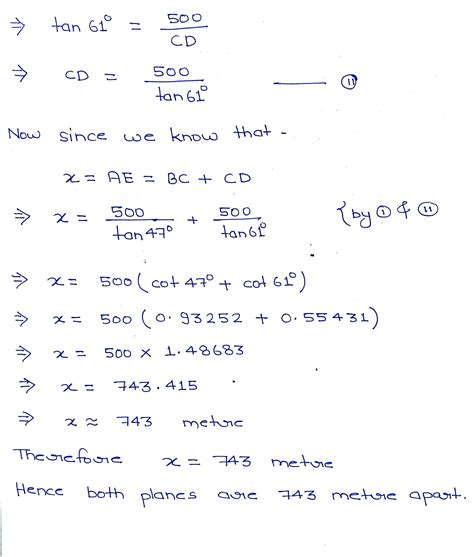 ⇒ tan 61° = 500/CD
⇒ CD = 500/tan 61° —— (11)
Now since we know that -
x = AE = BC + CD
⇒ x = 500/tan 47° + 500/tan 61° {by (1) & (11)
⇒ x = 500(cot 47° + cot 61°)
⇒ x = 500(0.93252 + 0.55431)
⇒ x = 500 × 1.48683
⇒ x = 743.415
⇒ x ≈ 743 metre
Therefore x = 743 metre
Hence both planes are 743 metre apart.